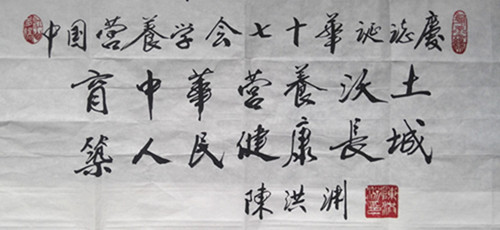 中国营養学会七十華诞誌慶
育中華营養沃土
築人民健康長城
陳洪渊